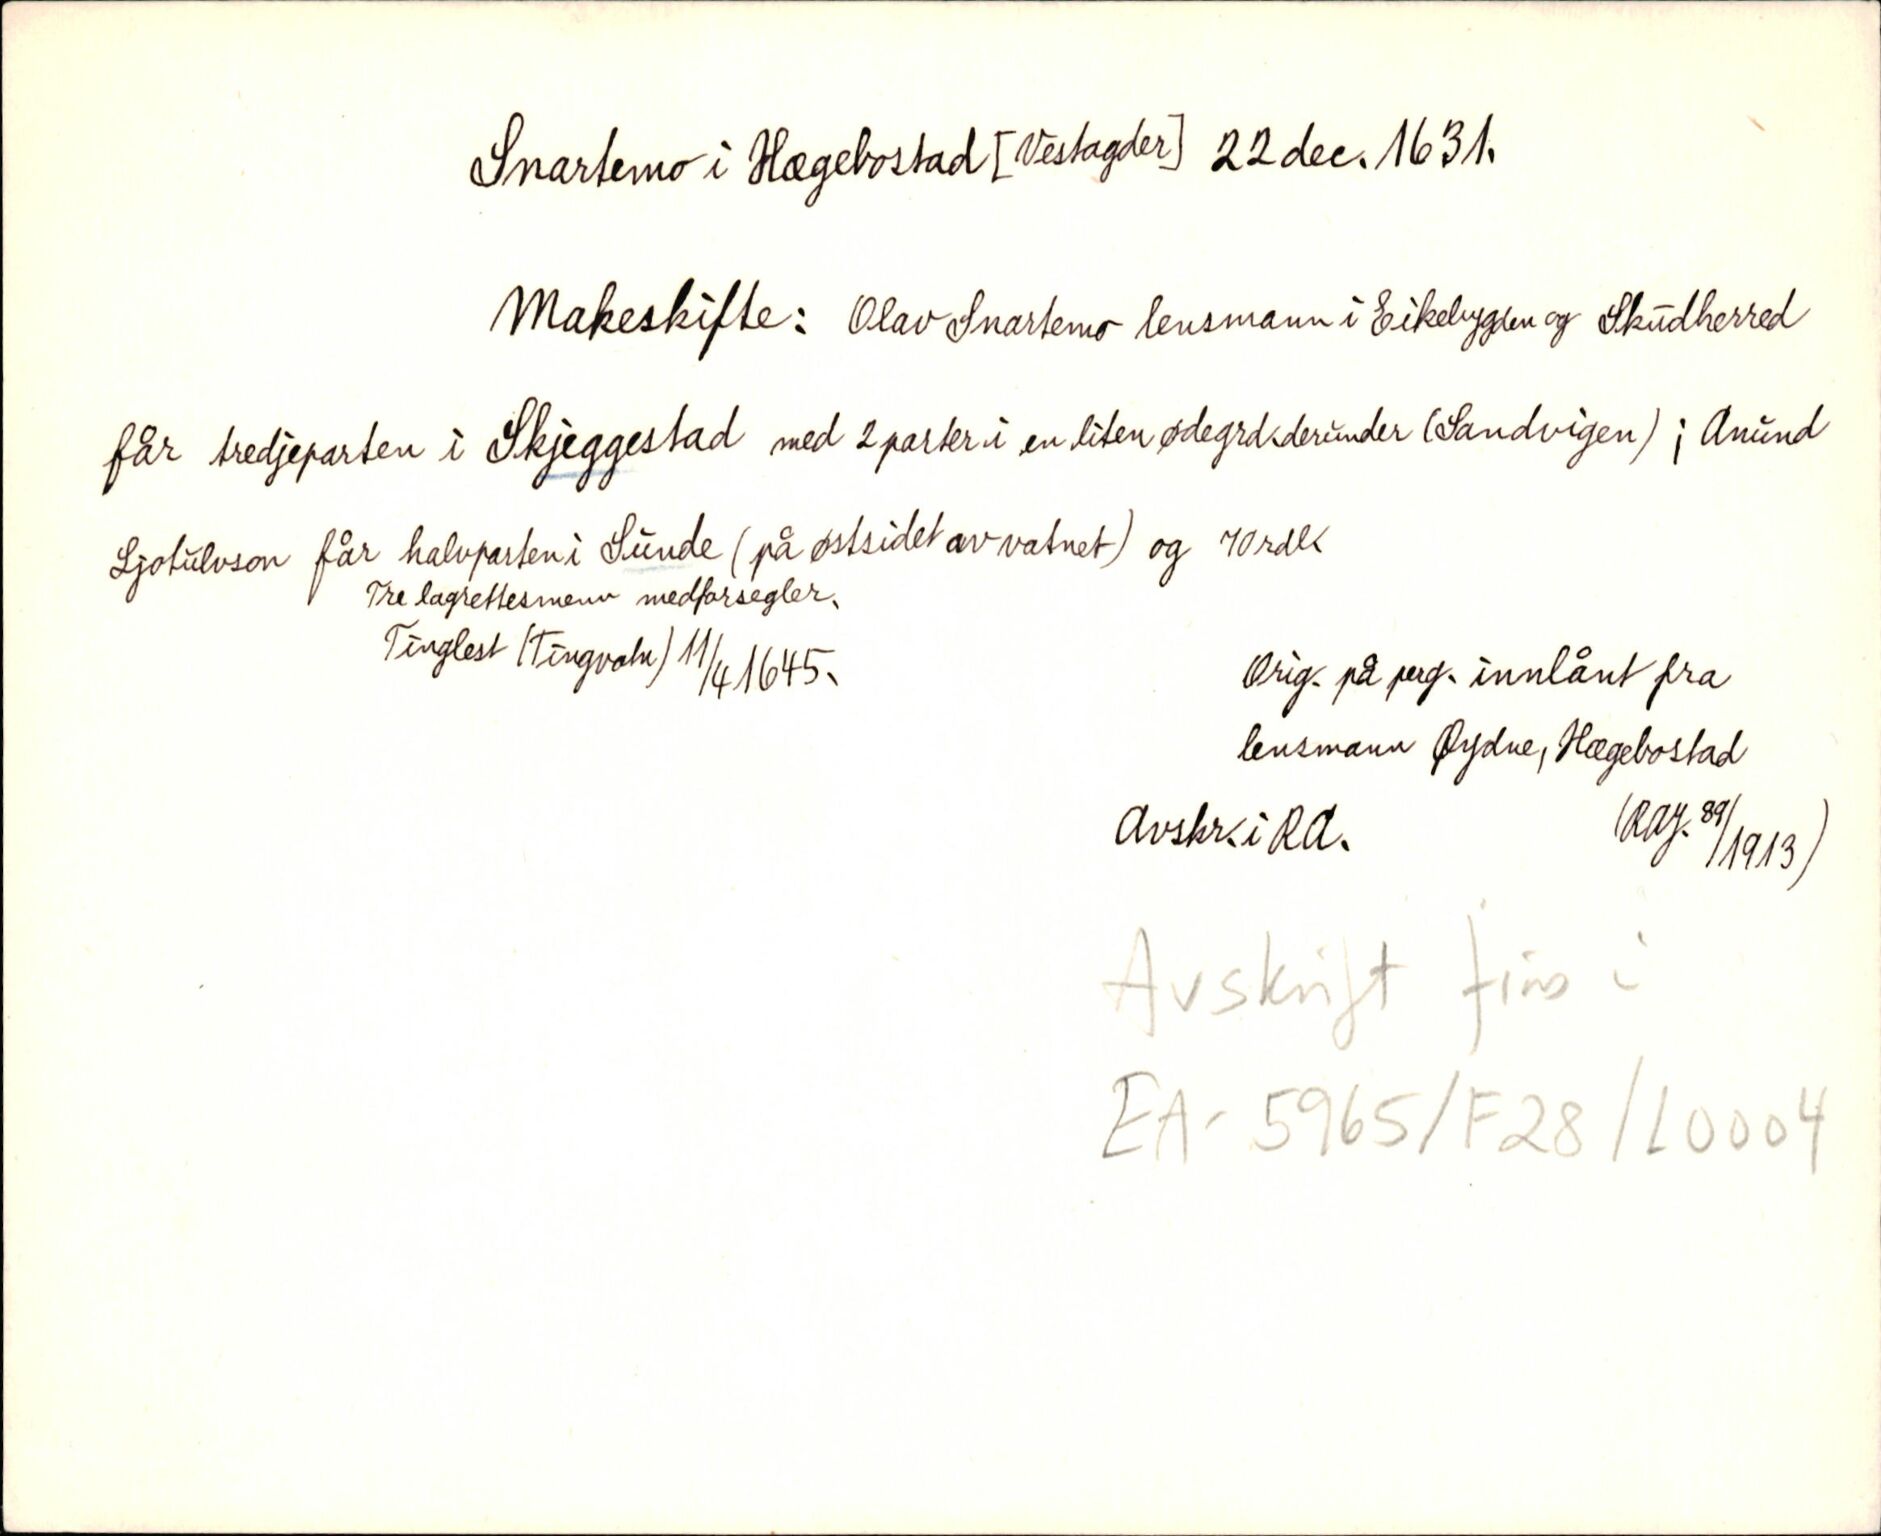 Snartemo i Hægebostad [Vestagder] 22 dec. 1631.
Makeskifte: Olav Snartemo lensmann i Eikebygden og Skudherred
får tredjeparten i Skjeggestad med 2 parter i en liten ødegrd. derunder (Sandvigen) ; Anund
Ljotulvson får halvparten i Sunde (på østsidet av vatnet) og 70 rdl.
Tre lagrettesmenn medforsegler.
Tinglest (Tingvatn) 11/4 1645.
Orig. på perg. innlånt fra
lensmann Øydne, Hægebostad
Avskr. i RA. (RAJ. 89/1913)
Avskrift fins i
EA- 5965/F28/L0004